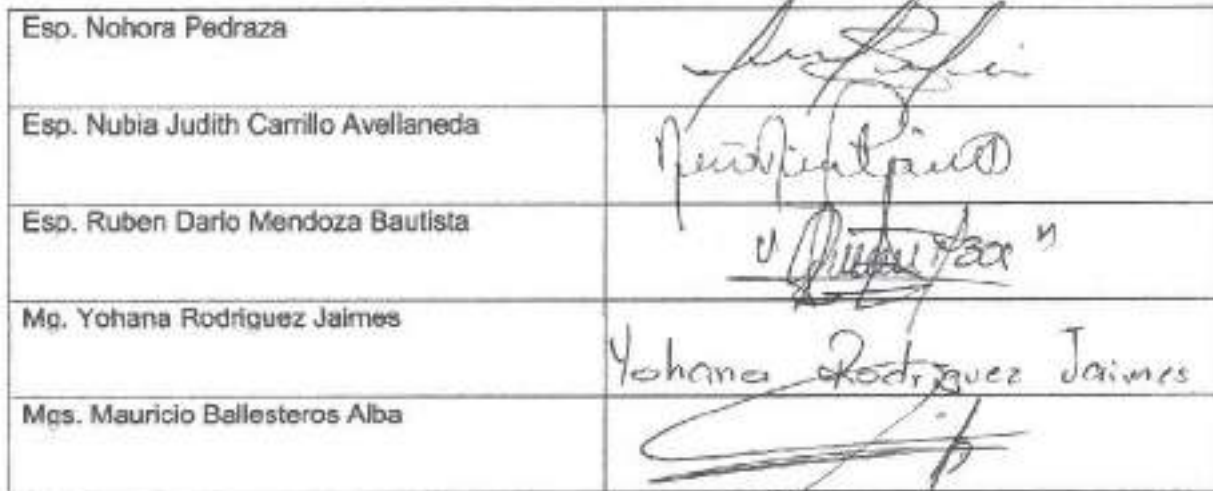 Esp. Nohora Pedraza
Esp. Nubia Judith Carrillo Avellaneda
Esp. Ruben Dario Mendoza Bautista
Mg. Yohana Rodriguez Jaimes
Yohana Rodriguez Jaimes
Mgs. Mauricio Ballesteros Alba